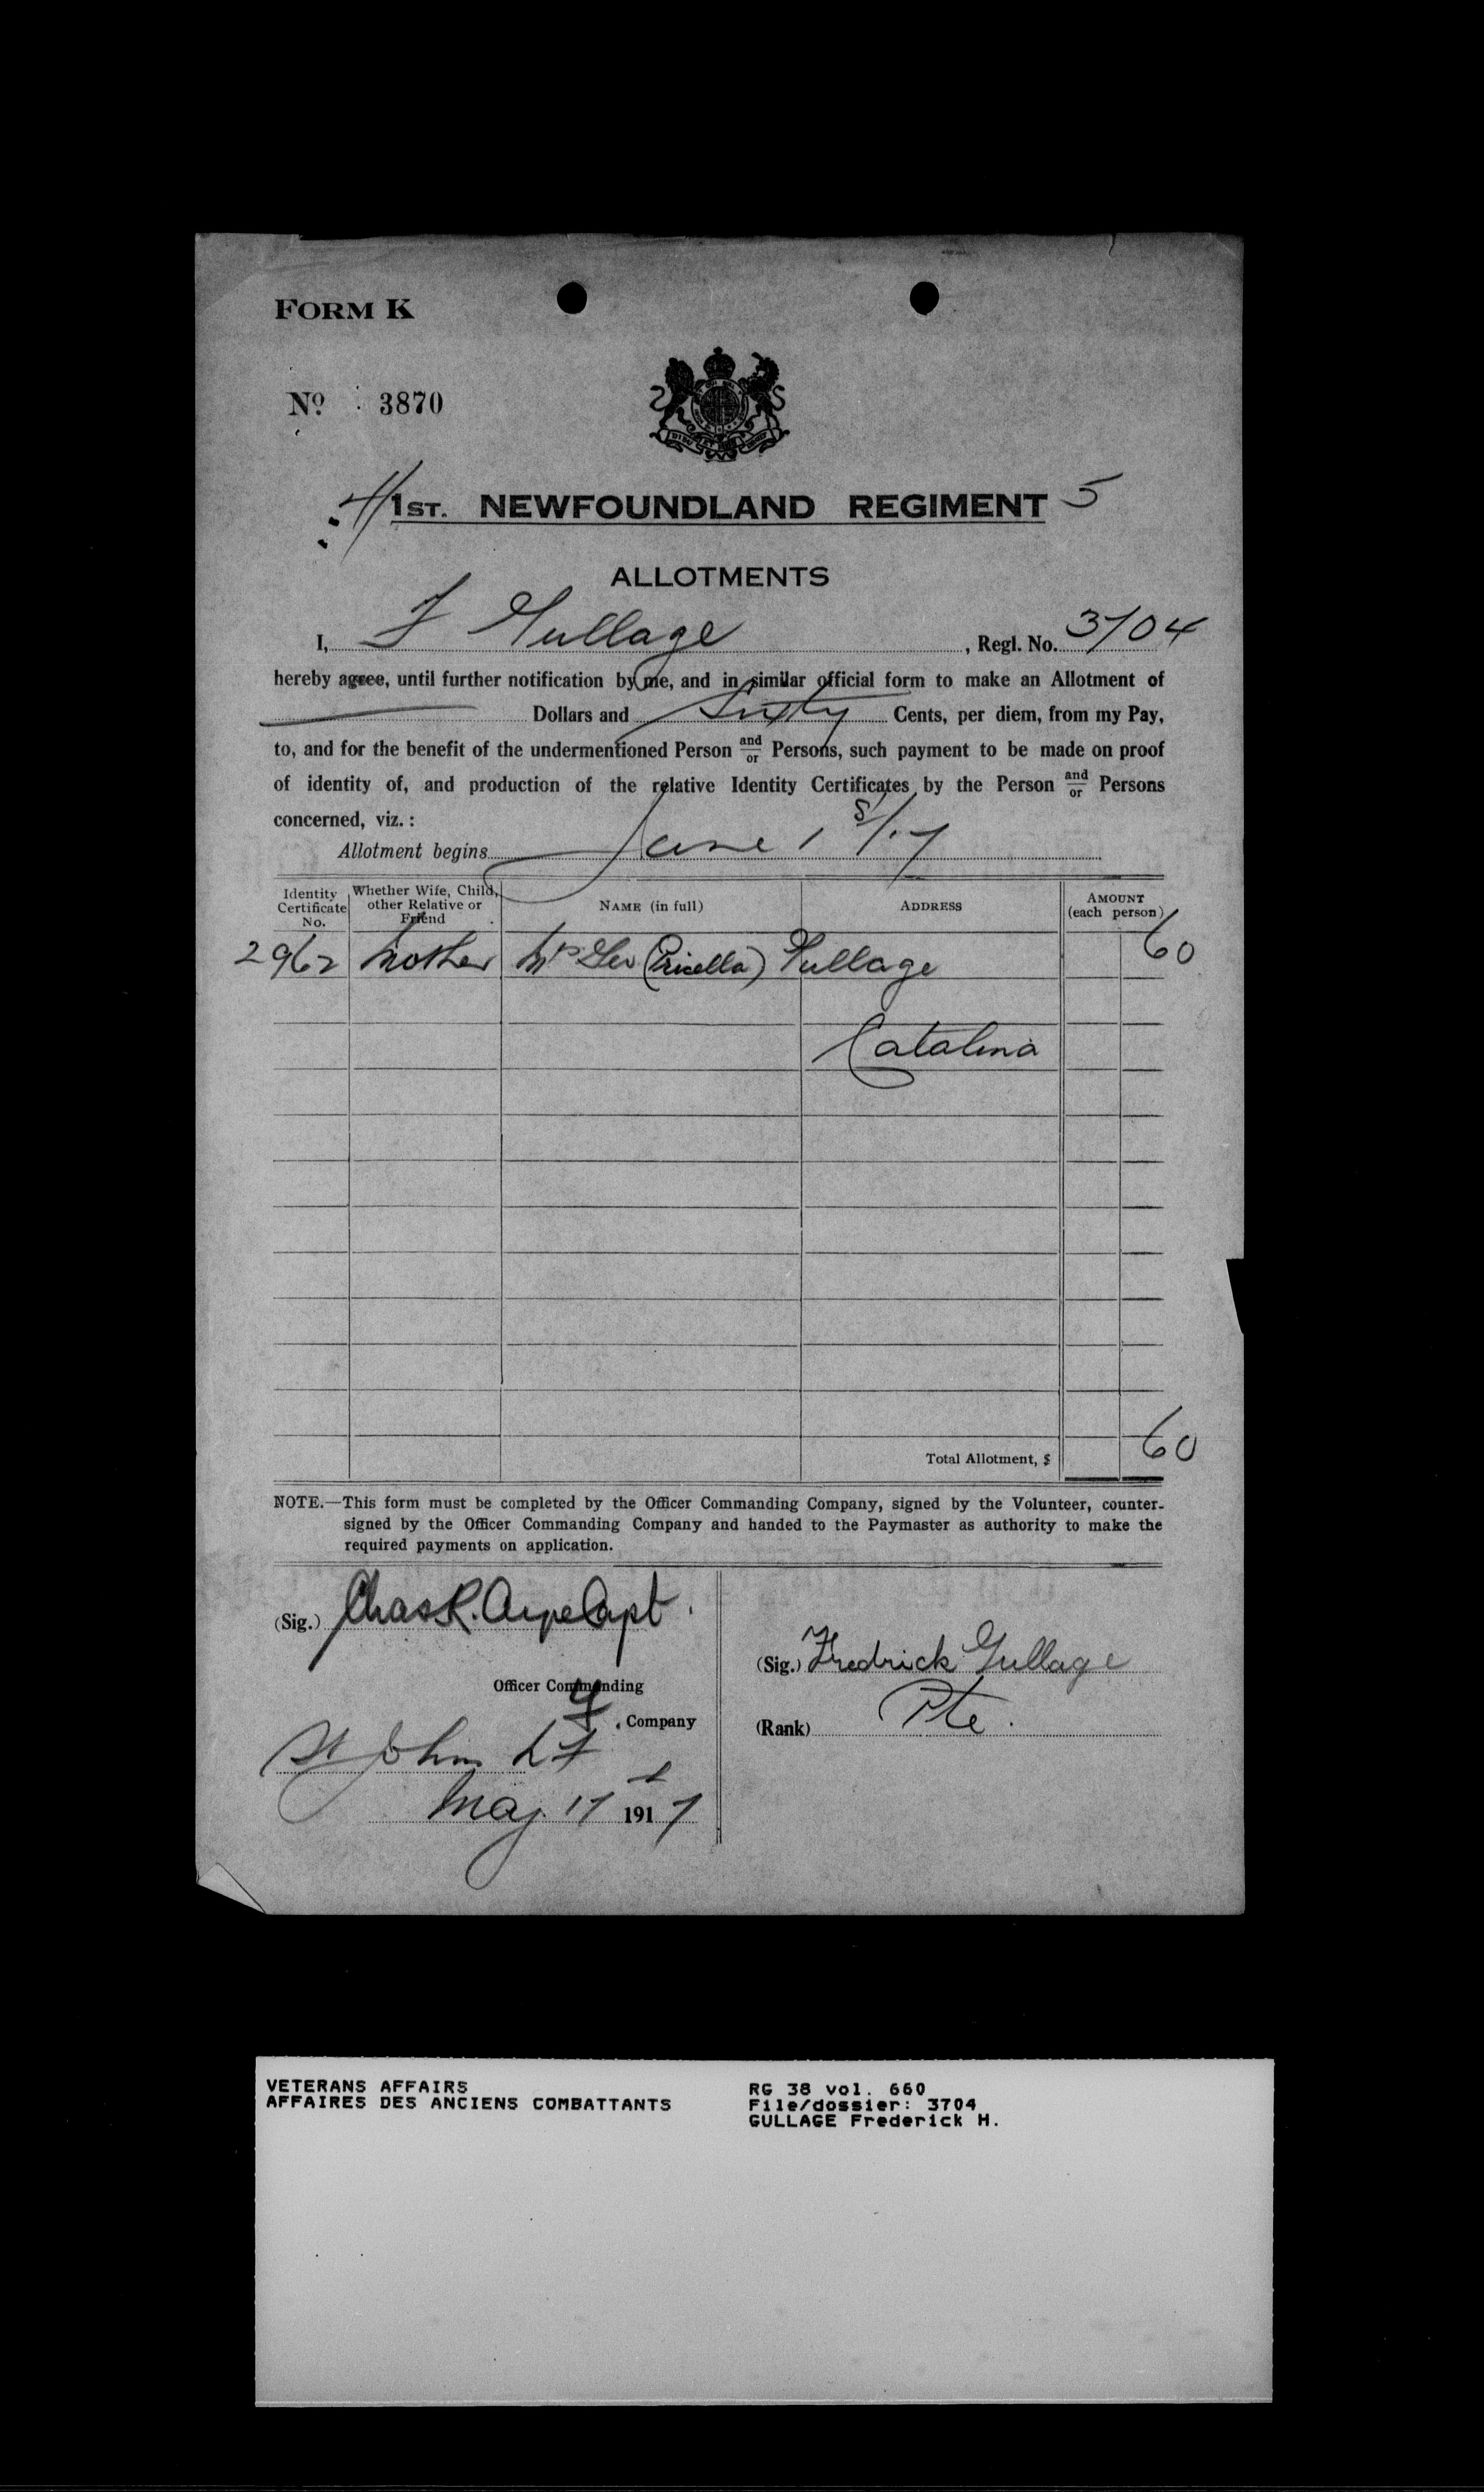 FORM K
No. 3870
1ST. NEWFOUNDLAND REGIMENT 5
ALLOTMENTS
I, F Gullage, Regl. No. 3704
hereby agree, until further notification by me, and in similar official form to make an Allotment of
Dollars and Sixty Cents, per diem, from my Pay,
to, and for the benefit of the undermentioned Person and/or Persons, such payment to be made on proof
of identity of, and production of the relative Identity Certificates by the Person and/or Persons
concerned, viz. :
Allotment begins June 1st/17
Identity Certificate No. Whether Wife, Child, other Relative or Friend NAME (in full) ADDRESS AMOUNT (each person)
2962 Mother Mrs Geo (Pricella) Gullage 60
Catalina
Total Allotment, $ 60
NOTE.—This form must be completed by the Officer Commanding Company, signed by the Volunteer, counter-
signed by the Officer Commanding Company and handed to the Paymaster as authority to make the
required payments on application.
(Sig.) Chas R. Ayre Capt.
Officer Commanding
F. Company
(Sig.) Fredrick Gullage
(Rank) Pte.
St John
May 17 1917
VETERANS AFFAIRS
AFFAIRES DES ANCIENS COMBATTANTS
RG 38 vol. 660
File/dossier: 3704
GULLAGE Frederick H.